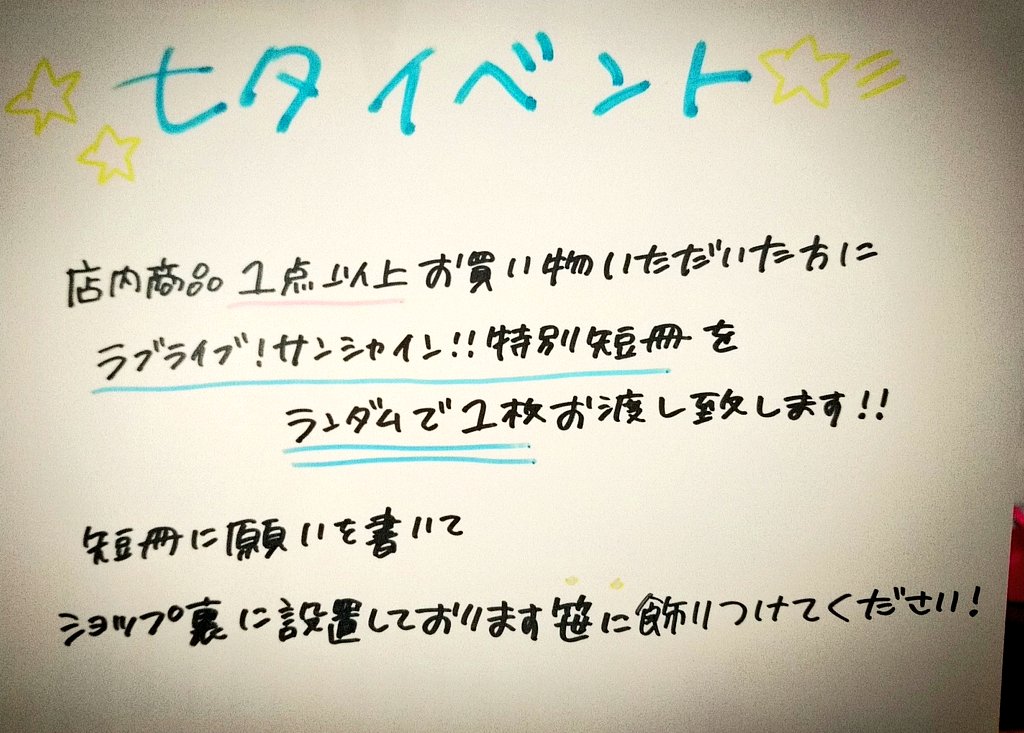 七夕イベント
店内商品1点以上お買い物いただいた方に
ラブライブ!サンシャイン!!特別短冊を
ランダムで1枚お渡し致します!!
短冊に願いを書いて
ショップ裏に設置しております笹に飾りつけてください!